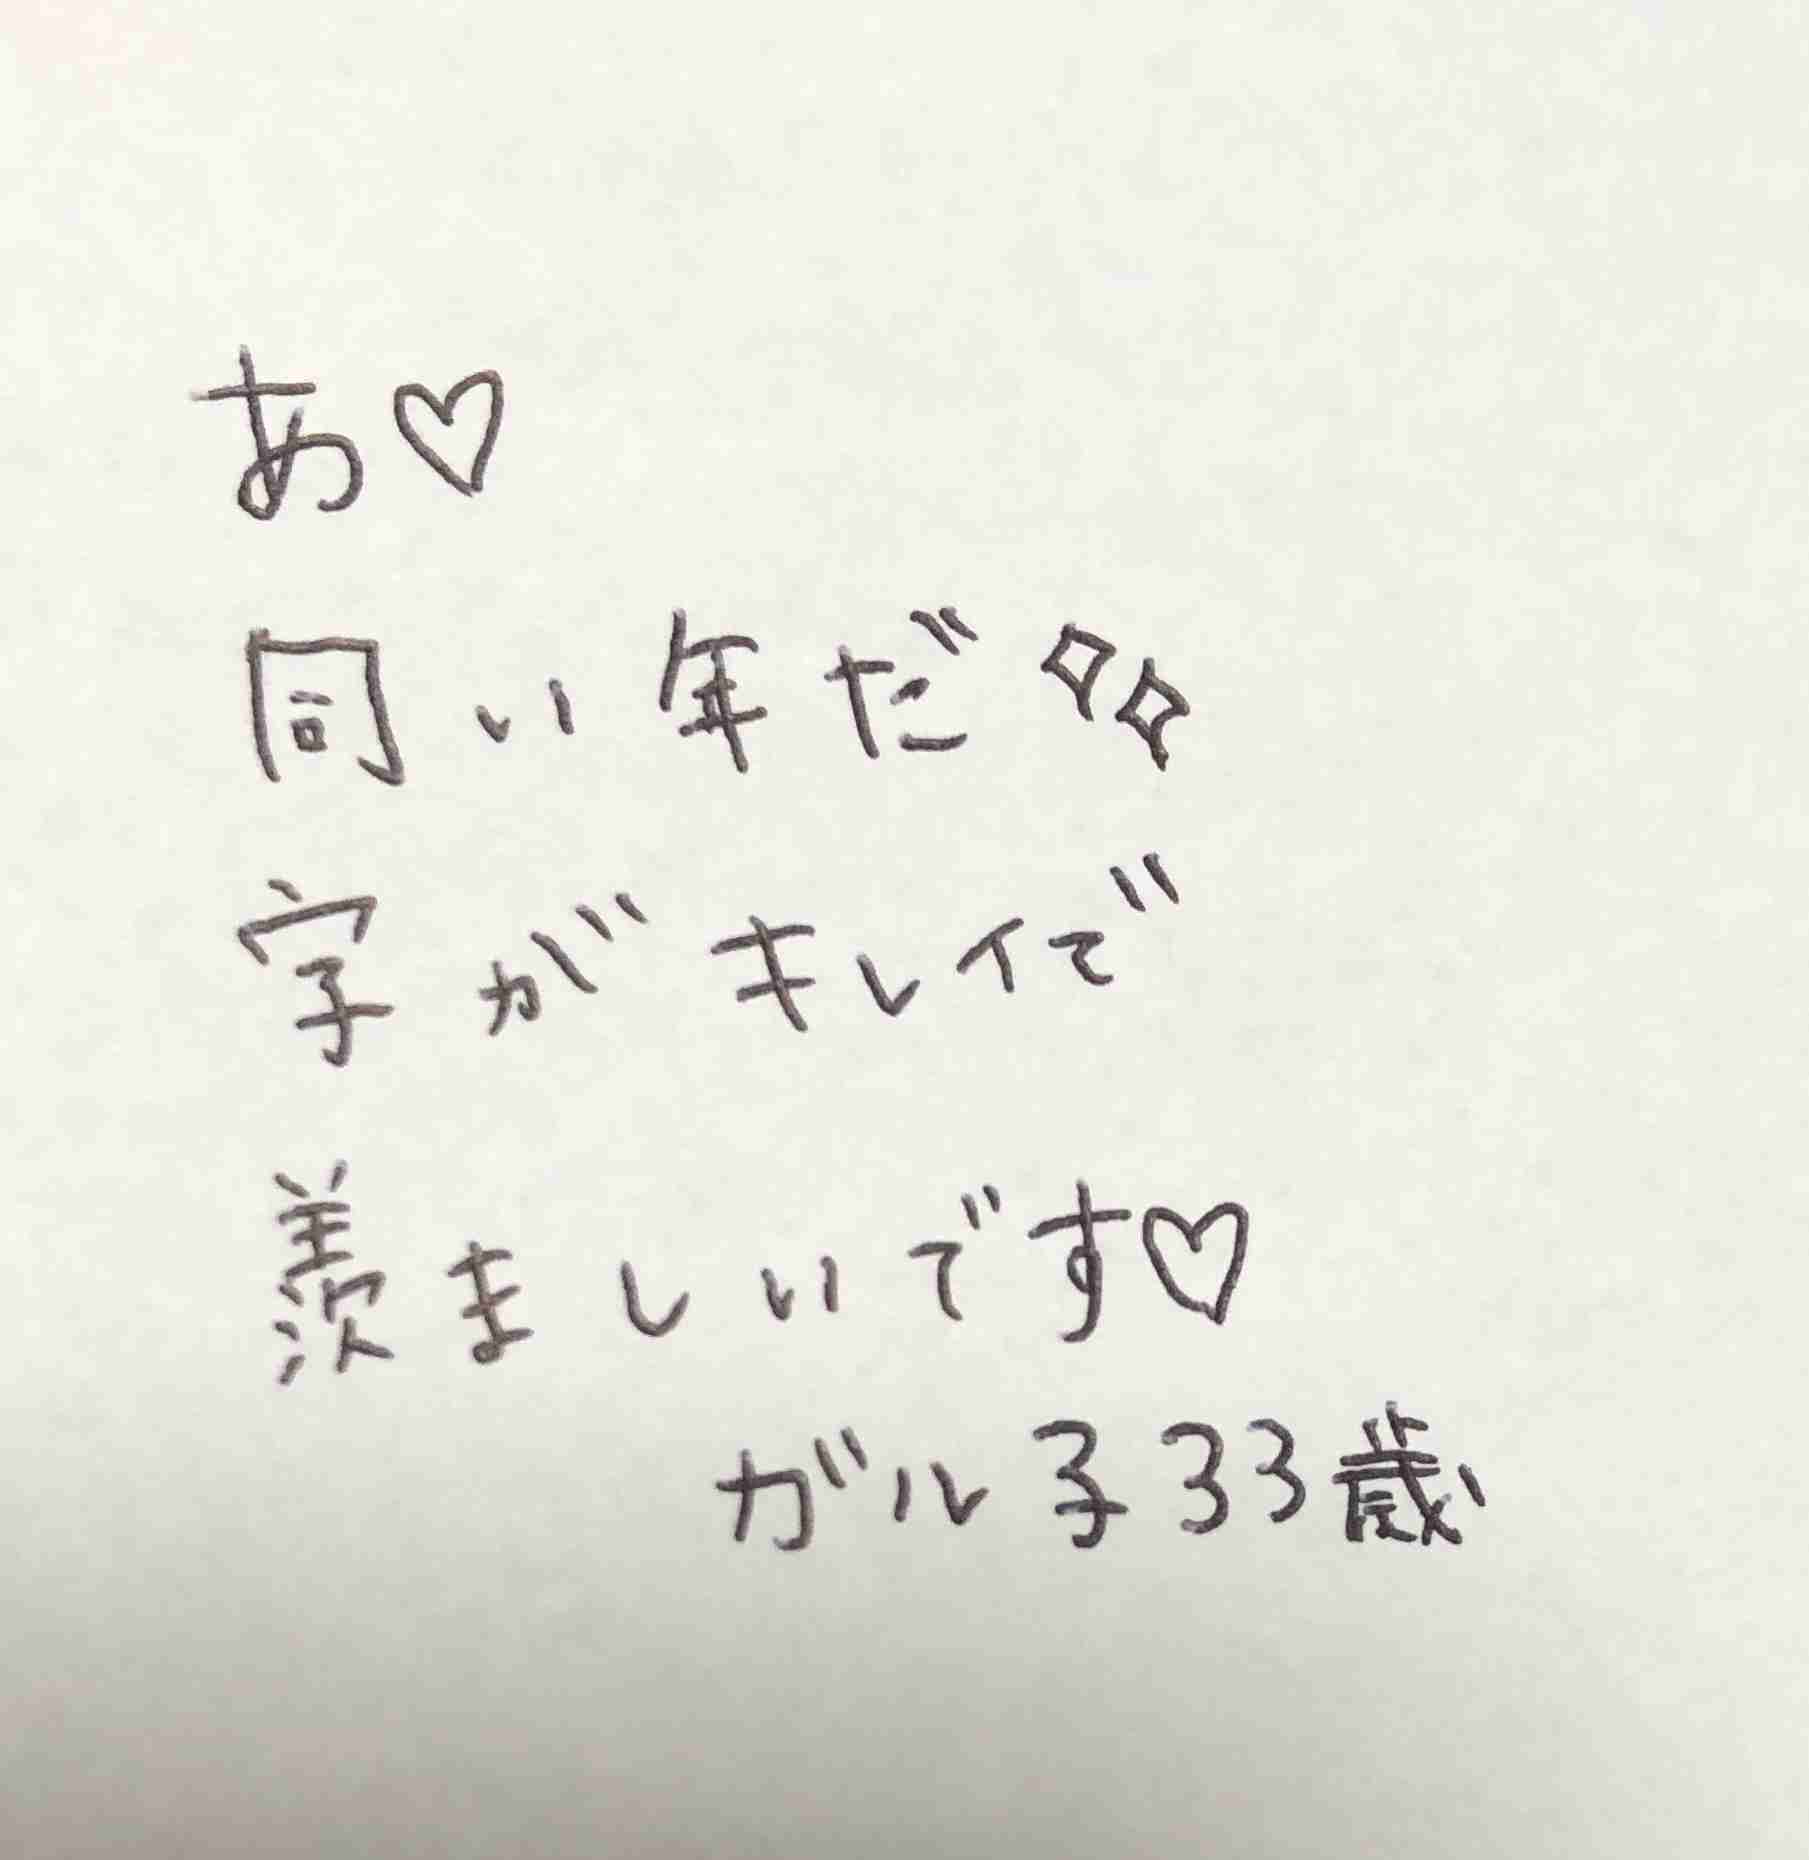 あ♡
同い年だ✧✧
字がキレイで
羨ましいです♡
ガル子33歳